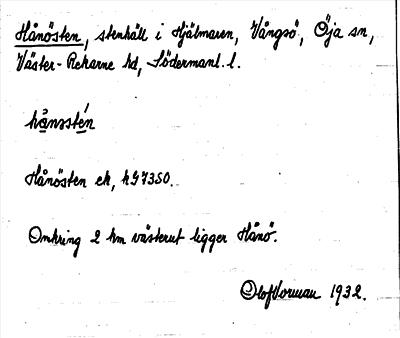 Hånösten, stenhäll i Hjälmaren, Vångsö, Öja sn,
Väster-Rekarne hd, Södermanl. l.
hå̀nsstén
Hånösten ek, hG7350.
Omkring 2 km västerut ligger Hånö.
Olof Vorman 1932.